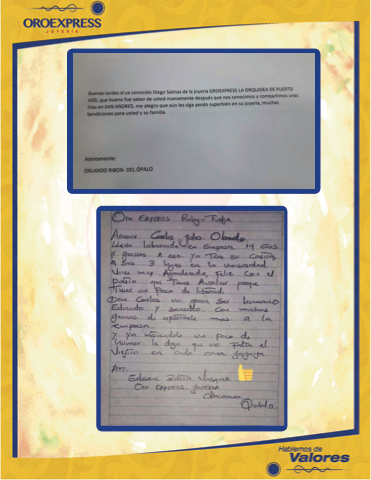 OROEXPRESS
JOYERÍA
Buenas tardes al ya conocido Diego Salinas de la joyería OROEXPRESS LA ORQUIDEA DE PUERTO
ASÍS, que bueno fue saber de usted nuevamente después que nos conocimos y compartimos unas
frías en SAN ANDRES, me alegro que aún les siga yendo superbién en su joyería, muchas
bendiciones para usted y su familia.
Atentamente:
ORLANDO RIBON- DEL ÓPALO
Oro Express Ruby-Tunja
Asesor. Carlos Julio Obando
Lleva laborando en Empresa 14 años
y
A sus 3 hijos en la universidad
Vive muy Agradecido, feliz con el
puesto que tiene porque
Tiene un poco de libertad.
Don Carlos un gran ser humano
Educado y sencillo. Con muchas
ganas de mas a la
Empresa.
y ya un poco de
humor le digo que no falta el
en cada
Att.
Edison
Oro Express
Quindío.
Hablemos de
Valores